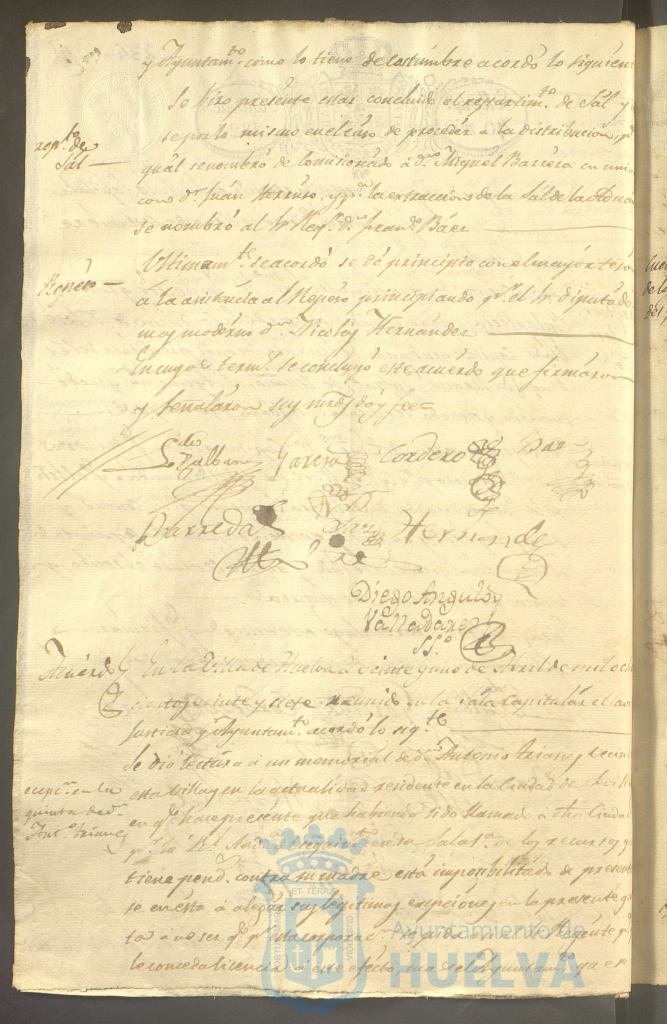 y Ayuntam.to como lo tiene de costumbre acordó lo siguien
Se hizo presente estar concluido el repartim.to de Sal y
rep.to de
Sal
se por lo mismo en el caso de proceder a la distribucion, p.
qual se nombró de comisionado á d.n Miguel Barrera en unio
con d.n Juan y p.a la extraccion de la Sal de la Aduan
se nombró al Sr. Rex.r d.n Fran.co Báez
Ultimam.te se acordó se dé principio con el mayor
Repeso
á la asistencia al Repeso principiando p.r el Sr. diputado
mas moderno d.n Nicolas Hernandez
En cuyos term.s se concluyó este acuerdo que firmáron
y señaláron sus mrds doy fee
Galban Garcia Cordero Paz
Barreda Hernande
Diego Angulo
Valladares
SS.o
Acuerdo
En la Villa de Huelva á veinte y uno de Abril de mil och
cientos veinte y siete reunido en la Sala Capitular el
Justicia y Ayuntam.to acordó lo sig.te
Se dió lectura á un memorial de d.n Antonio Trianes vecino
esta Villa y en la actualidad residente en la Ciudad de Sevill
en la
quinta de d.n
Ant.o Trianes
en q.e hace presente que habiendo sido llamado á dha Ciudad
p.r la R.l Aud.a en su Sala de los recursos q
tiene pend.s contra su madre está imposibilitado de present
se en esta á alegar sus legitimas excepciones en la presente qu
ta á no ser q.e p.r esta corporac.n
le conceda licencia á este efecto, ya
ET TERRAE
Ayuntamiento de
HUELVA